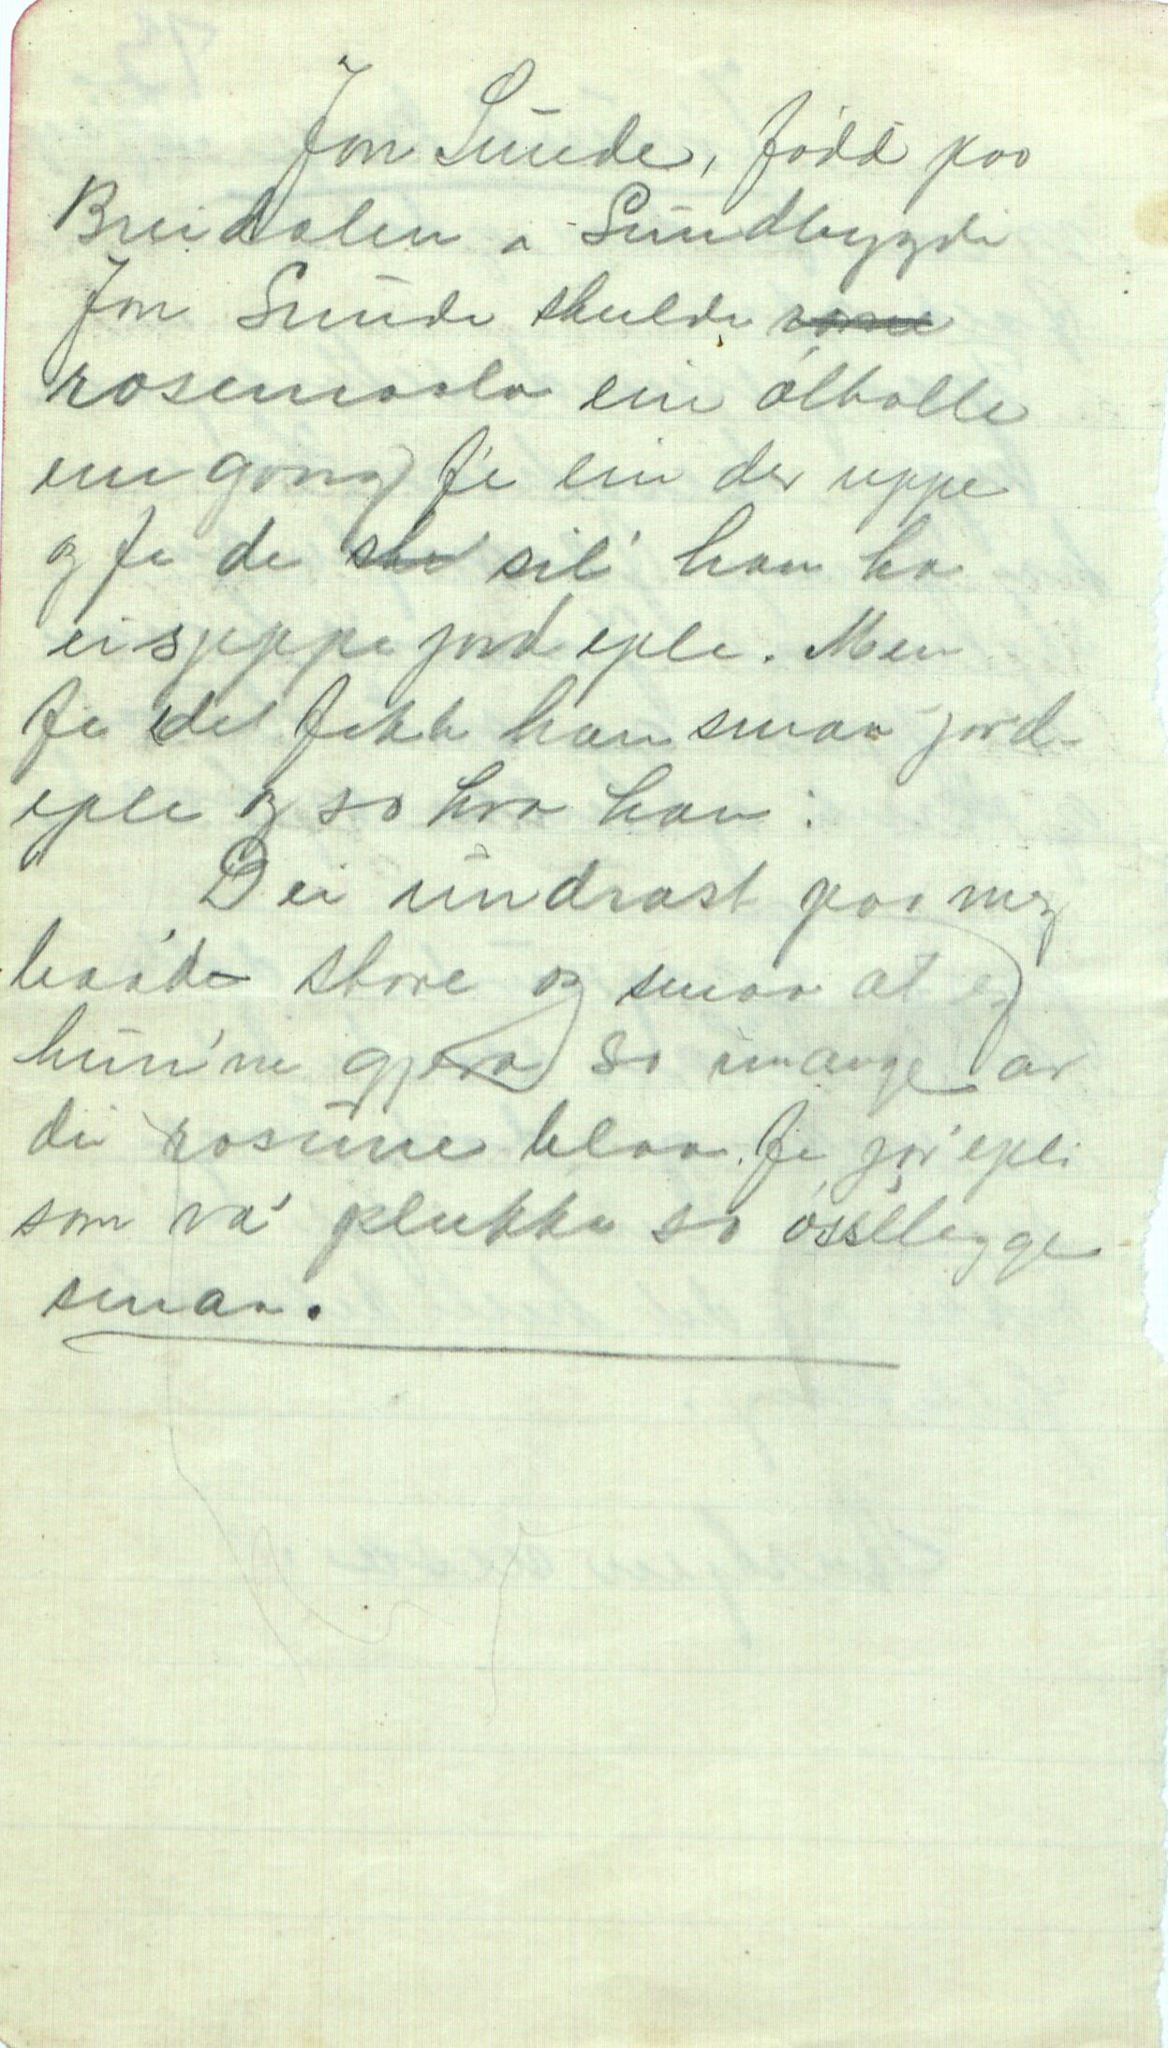 Jon Sunde, född paa
Breidalen a Sundbygdi
Jon Sunde skulde
rosemaala ein ölbolle
ein gong fe ein der uppe
og fe de sil' han ha
ei sjeppe jordeple. Men
fe det fekk han smaa jord-
eple og so kva han:
Dei undrast paa meg
baade store og smaa at eg
kun'ne gjera so mange av
dei rosune blaa. Fe jor'epli
som va' plukka so
smaa.